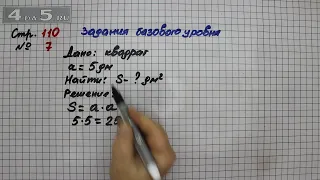 4 ДА 5.РУ
Стр. 110 Задания базового уровня
№ 7
Дано: квадрат
a = 5 дм
Найти: S - ? дм²
Решение
S = a · a
5 · 5 = 25